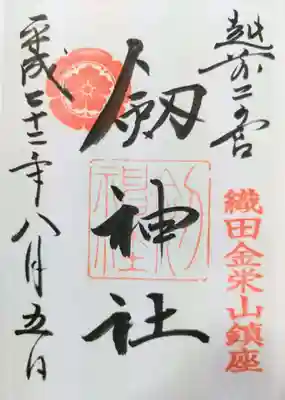 越前二宮
織田金栄山鎮座
劔神社
平成二十二年八月五日